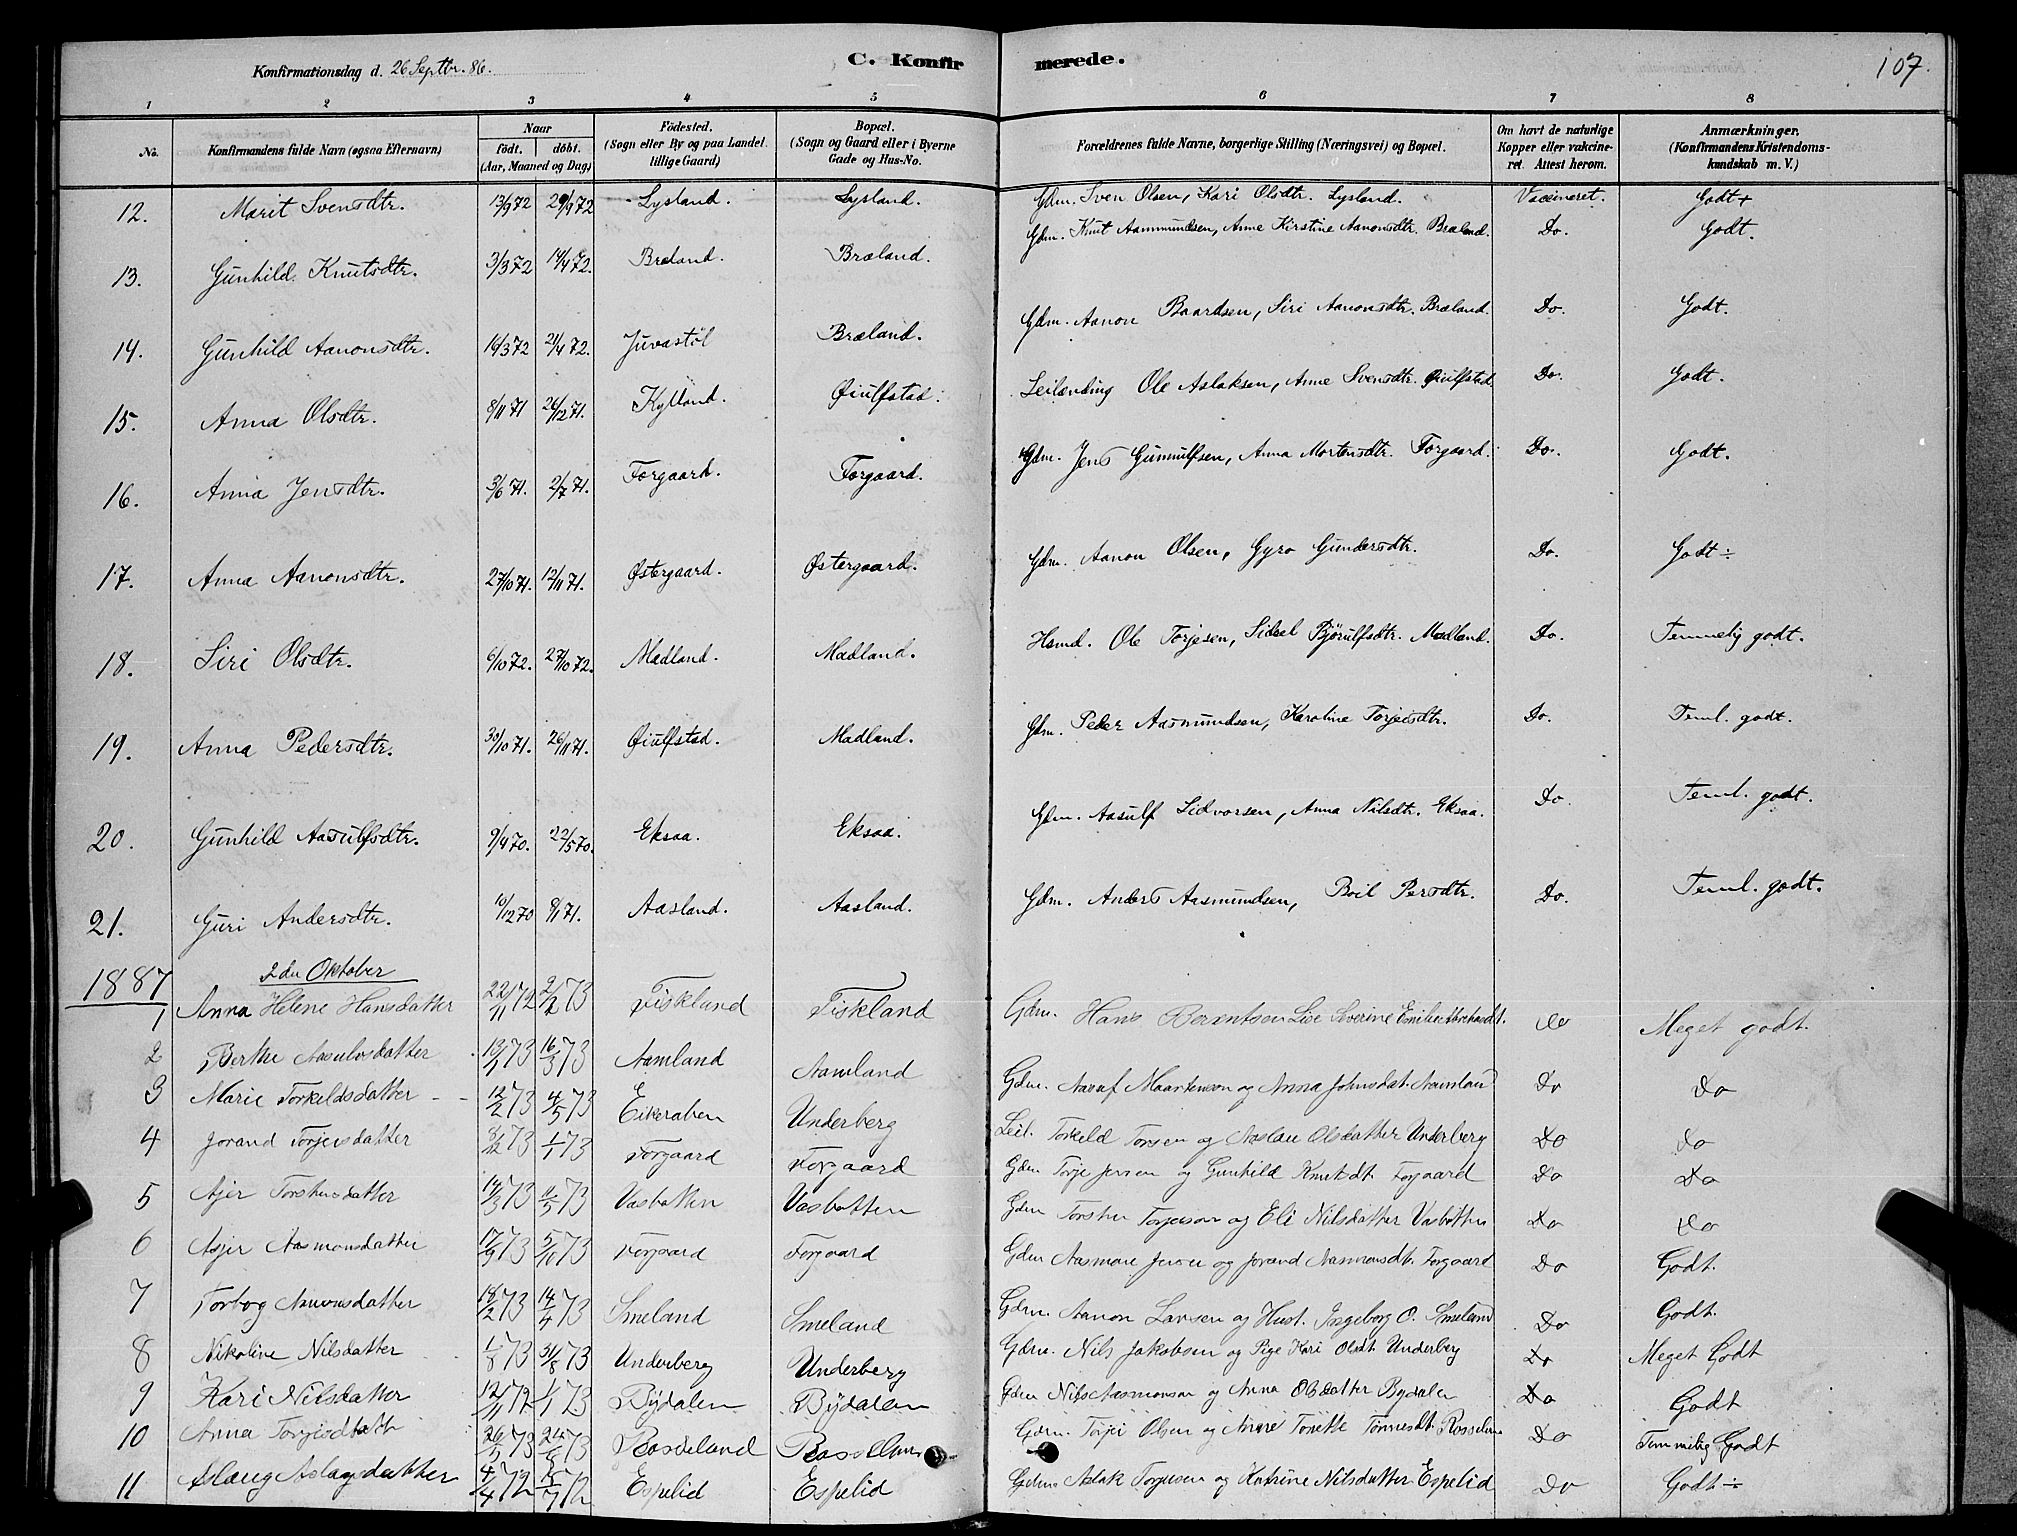 Konfirmationsdag d. 26 Septbr. 86. C. Konfirmerede. 107.
1 2 3 4 5 6 7 8
No. Konfirmandens fulde Navn (ogsaa Efternavn) Naar födt. döbt. (Aar, Maaned og Dag) Födested. (Sogn eller By og paa Landet tillige Gaard) Bopæl. (Sogn og Gaard eller i Byerne Gade og Hus-No. Forældrenes fulde Navne, borgerlige Stilling (Næringsvei) og Bopæl. Om havt de naturlige Kopper eller vakcineret. Attest herom. Anmærkninger. (Konfirmandens Kristendomskundskab m. V.)
12. Marit Svensdtr. 13/9 72 29/9 72 Lysland. Lysland. Gdm. Sven Olsen, Kari Olsdtr. Lysland. Vaccineret. Godt+
13. Gunhild Knutsdtr. 3/3 72 14/4 72. Bræland. Bræland. Gdm. Knut Aanmundsen, Anne Kirstine Aanonsdtr. Bræland. Do. Godt.
14. Gunhild Aanonsdtr. 16/3 72 21/4 72. Juvastöl Bræland. Gdm. Aanon Baardsen, Siri Aanonsdtr. Bræland. Do. Godt.
15. Anna Olsdtr. 8/11 71 26/12 71. Kylland. Øiulfstad. Leilænding Ole Aslaksen, Anne Svensdtr. Øiulfstad Do. Godt.
16. Anna Jensdtr. 3/6 71. 2/7 71. Forgaard. Forgaard. Gdm. Jens Gunnulfsen, Anna Mortensdtr. Forgaard. Do. Godt.
17. Anna Aanonsdtr. 27/10 71. 12/11 71. Østergaard. Østergaard. Gdm. Aanon Olsen, Gyro Gundersdtr. Do. Godt÷
18. Siri Olsdtr. 6/10 72. 27/10 72. Mædland. Mædland. Hsmd. Ole Torjesen, Sidsel Bjørulfsdtr. Mædland. Do. Temmelig godt.
19. Anna Pedersdtr. 30/10 71. 26/11 71. Øiulfstad. Mædland. Gdm. Peder Aasmundsen, Karoline Torjersdtr. Do. Teml. godt.
20. Gunhild Aasulfsdtr. 9/4 70. 22/5 70. Eksaa. Eksaa. Gdm. Aasulf Sidvorsen, Anna Nilsdtr. Eksaa. Do. Teml. godt.
21. Guri Andersdtr. 10/12 70 8/1 71. Aasland. Aasland. Gdm. Anders Aasmundsen, Boil Persdtr. Do. Teml. godt.
1887 2den Oktober
1 Anna Helene Hansdatter 22/11 72 2/2 73 Fiskland Fiskland Gdm. Hans Berentsen Lise Severine do Meget godt.
2 Berthe Aasulvsdatter 13/1 73 16/3 73 Aamland Aamland Gdm. Maartenson og Anna Johnsdat. Aamland Do Do
3 Marie Torkeldsdatter 12/2 73 4/5 73 Eikeraben Underberg Leil. Torkeld Torsen og Aslau Olsdatter Underberg Do Do
4 Jorand Torjersdatter 73 1/1 73 Forgaard Forgaard Gdm Torje Jensen og Gunhild Knutsdt. Forgaard Do Do
5 Asjer Torstensdatter 14/3 73 73 Vasbotten Vasbotten Gdm Torsten Torjerson og Eli Nilsdatter Vasbotten Do Do
6 Asjer Aasmonsdatter 17/9 73 5/10 73 Forgaard Forgaard Gdm Aasmon Jensen og Jorand Aasmonsdt. Forgaard Do Godt.
7 Torbog Aanonsdatter 18/2 73 14/4 73 Smeland Smeland Gdm. Aanon Larsen og Hust. Ingeborg O. Smeland Do Godt.
8 Nikoline Nilsdatter 1/8 73 31/8 73 Underberg Underberg Gdm. Nils Jakobsen og Pige Kari Olsdt Underberg Do Meget Godt
9 Kari Nilsdatter 12/11 72 1/1 73 Bÿdalen Bÿdalen Gdm Nils Aasmonson og Anna Olsdatter Bydalen Do Godt
10 Anna Torjisdtatt 26/5 73 24/6 73 Rosseland Rosseland Gdm. Torjei Olsen og Anne Tonette Tønnesdt. Do Temmelig Godt
11 Aslaug Aslagsdatter 4/4 72 72 Espelid Espelid Gdm. Aslak Torjusen og Katrine Nilsdatter Espelid Do Godt÷